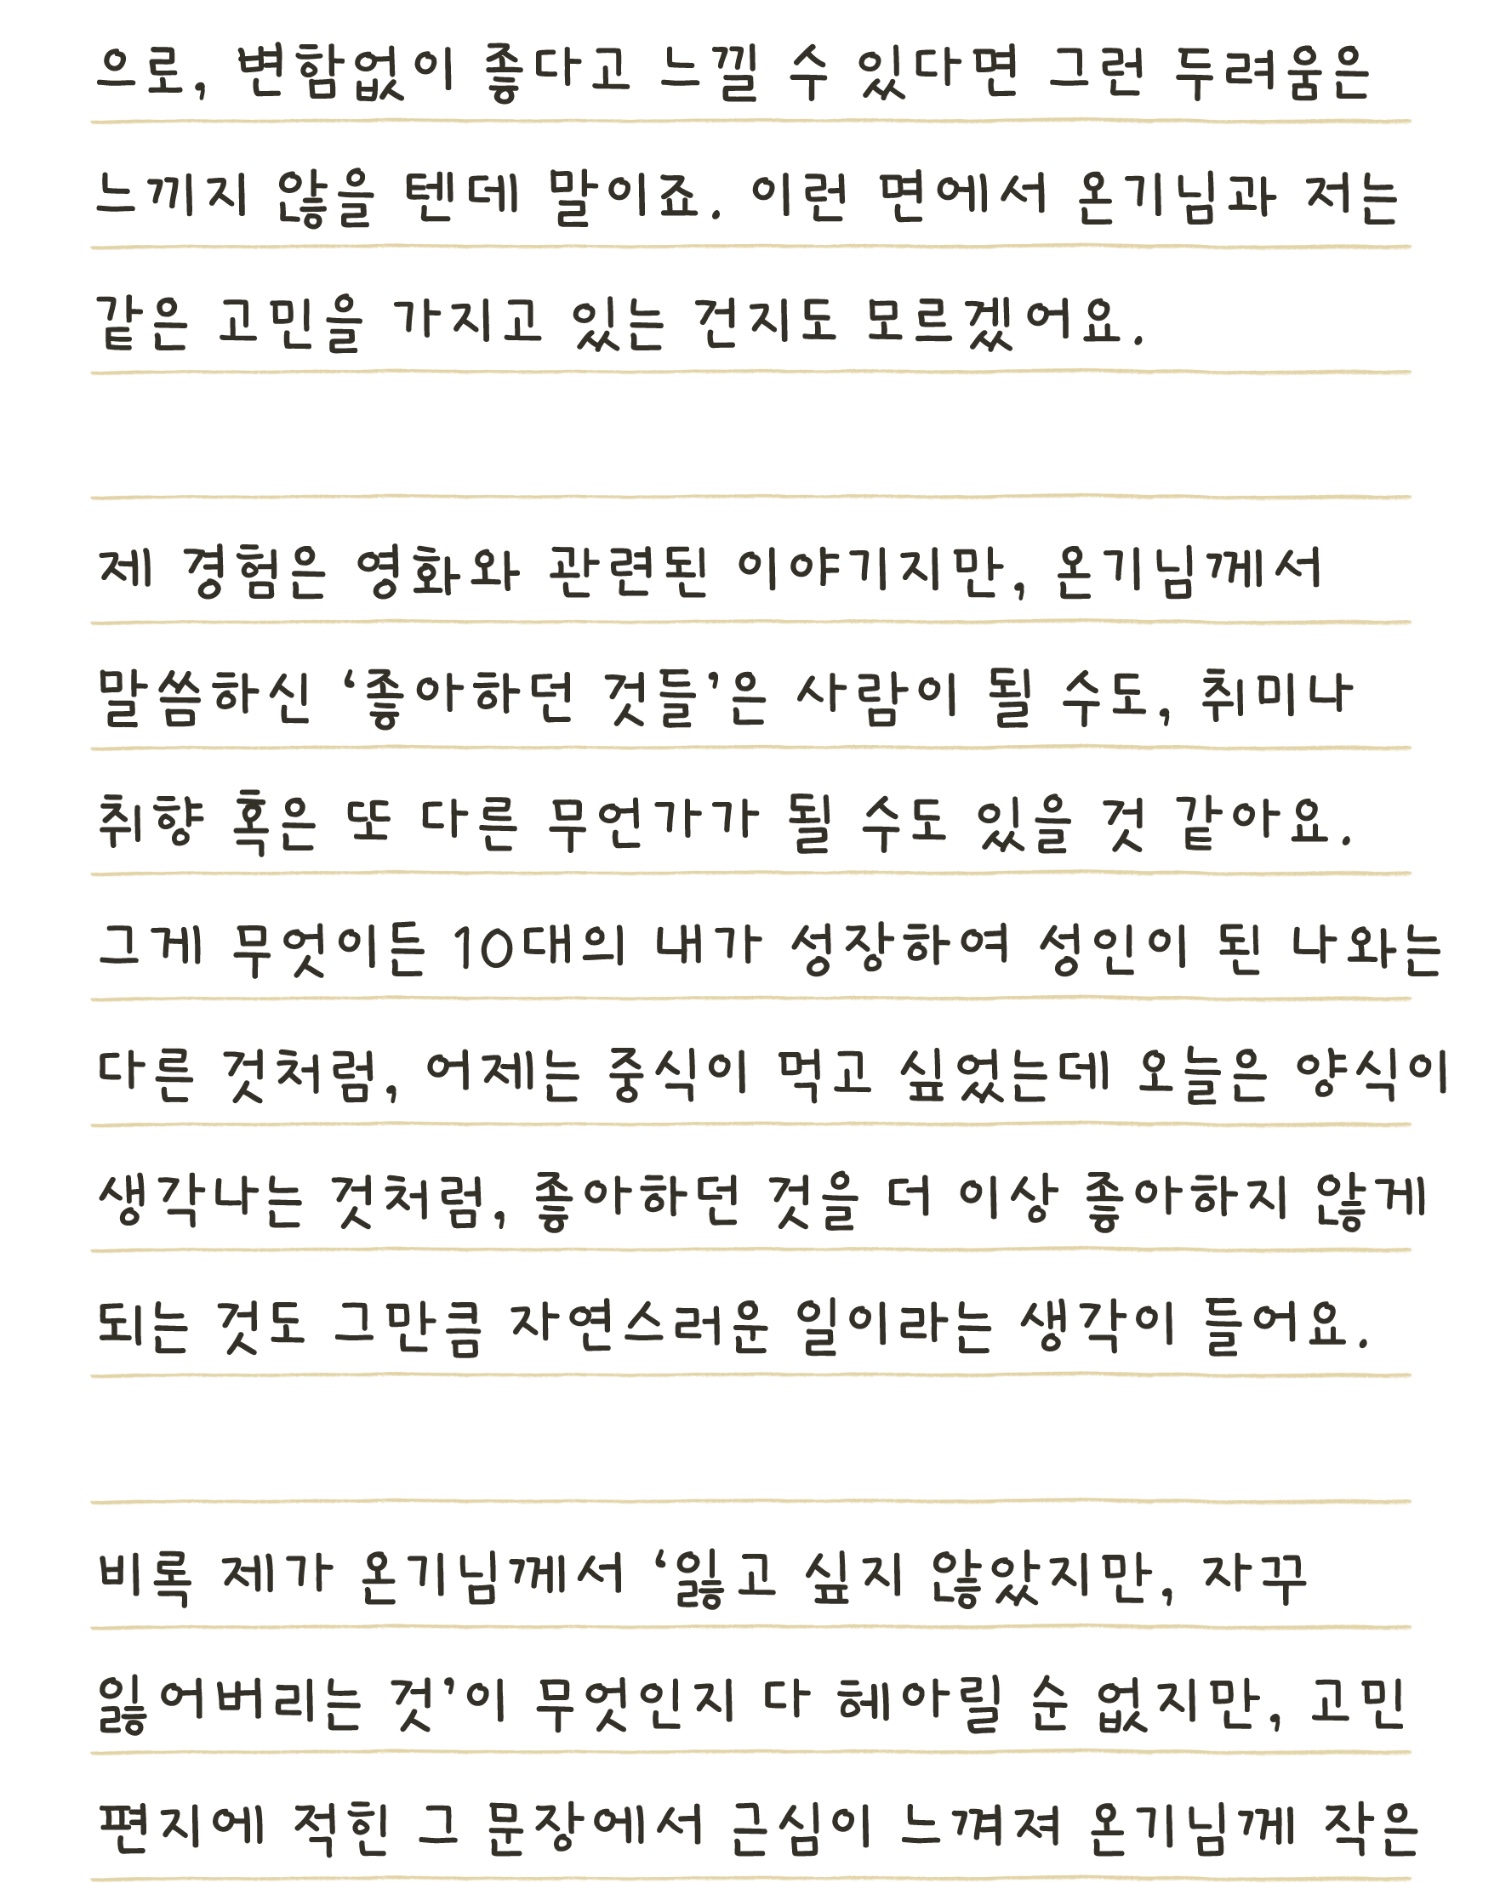 으로, 변함없이 좋다고 느낄 수 있다면 그런 두려움은
느끼지 않을 텐데 말이죠. 이런 면에서 온기님과 저는
같은 고민을 가지고 있는 건지도 모르겠어요.
제 경험은 영화와 관련된 이야기지만, 온기님께서
말씀하신 ‘좋아하던 것들’은 사람이 될 수도, 취미나
취향 혹은 또 다른 무언가가 될 수도 있을 것 같아요.
그게 무엇이든 10대의 내가 성장하여 성인이 된 나와는
다른 것처럼, 어제는 중식이 먹고 싶었는데 오늘은 양식이
생각나는 것처럼, 좋아하던 것을 더 이상 좋아하지 않게
되는 것도 그만큼 자연스러운 일이라는 생각이 들어요.
비록 제가 온기님께서 ‘잃고 싶지 않았지만, 자꾸
잃어버리는 것’이 무엇인지 다 헤아릴 순 없지만, 고민
편지에 적힌 그 문장에서 근심이 느껴져 온기님께 작은